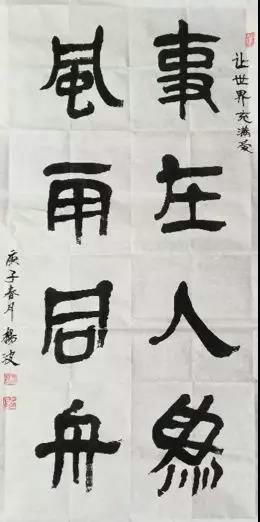 让世界充满爱
事在人為
風雨同舟
庚子春月楊波